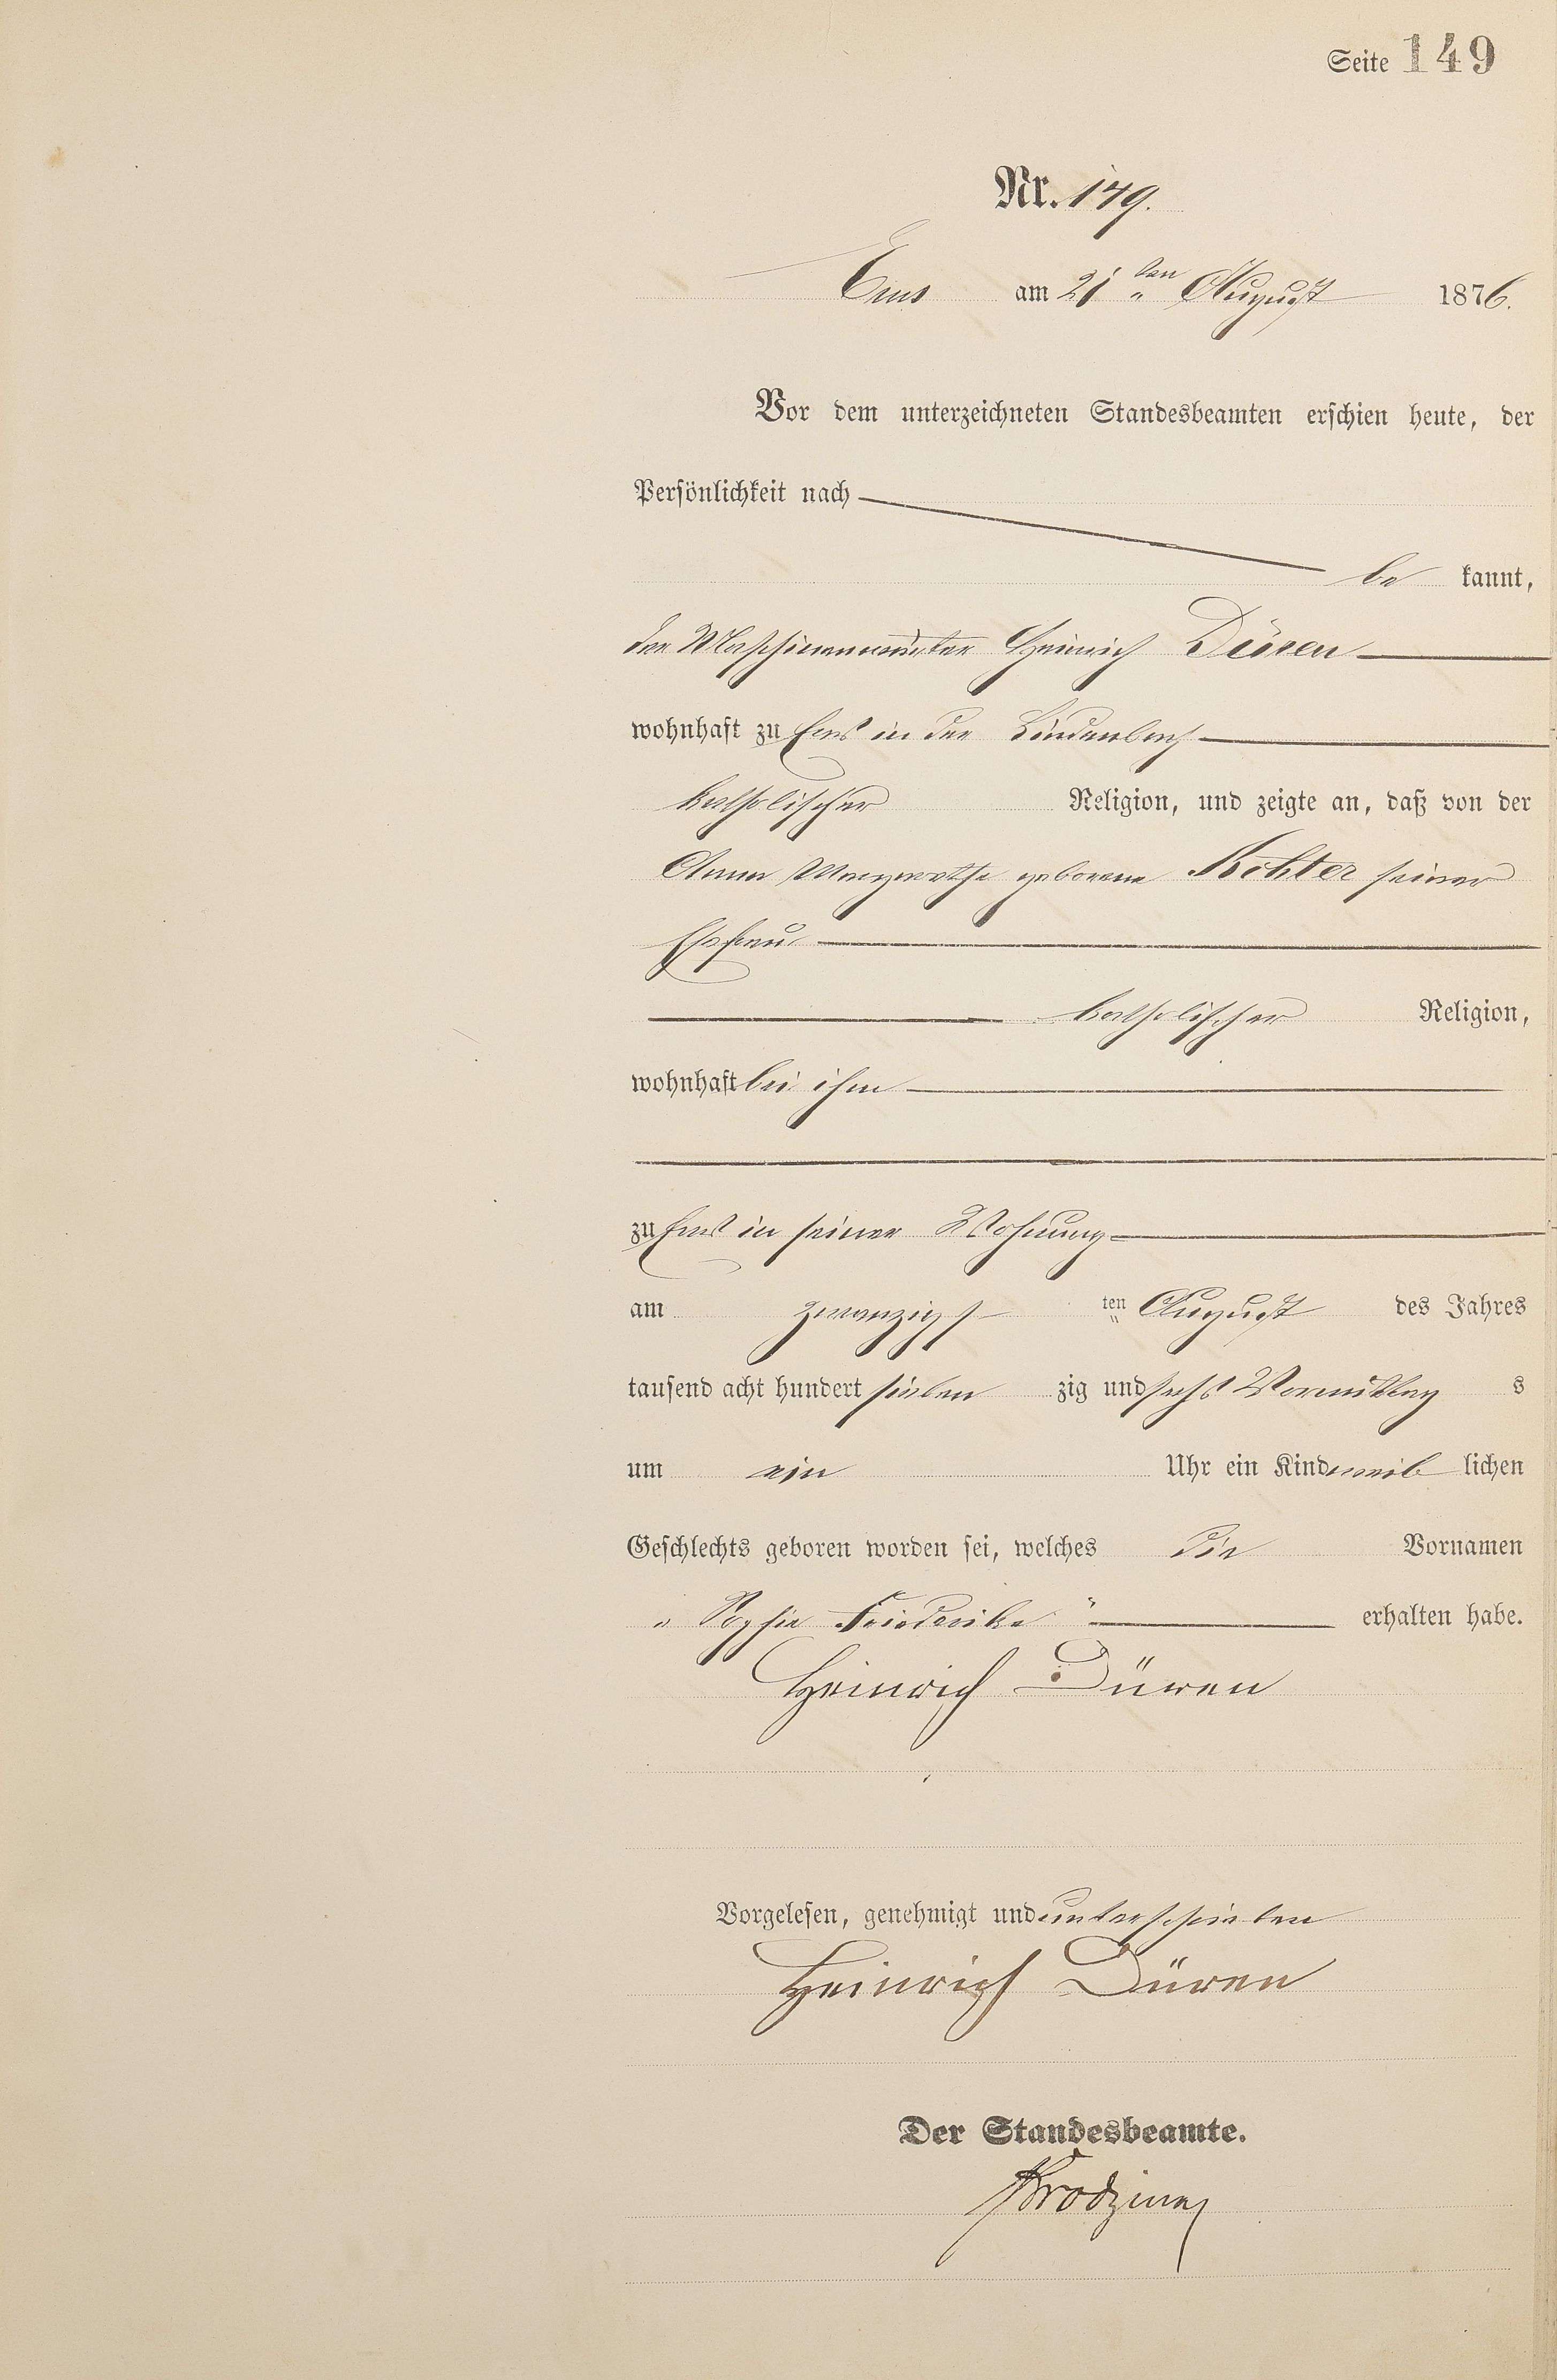 Seite 149
Nr. 149.
Ems am 21ten August 1876.
Vor dem unterzeichneten Standesbeamten erschien heute, der
Persönlichkeit nach
be kannt,
der Maschinenwärter Heinrich Düren
wohnhaft zu Ems in der Lindenbach
katholischer Religion, und zeigte an, daß von der
Anna Margarethe geborene seiner
Ehefrau
katholischer Religion,
wohnhaft bei ihm
zu Ems in seiner Wohnung
am zwanzigs ten August des Jahres
tausend acht hundert sieben zig und sechs Vormittag s
um ein Uhr ein Kind weib lichen
Geschlechts geboren worden sei, welches die Vornamen
„ Sophie Friederike “ erhalten habe.
Heinrich Düren
Vorgelesen, genehmigt und unterschrieben
Heinrich Düren
Der Standesbeamte.